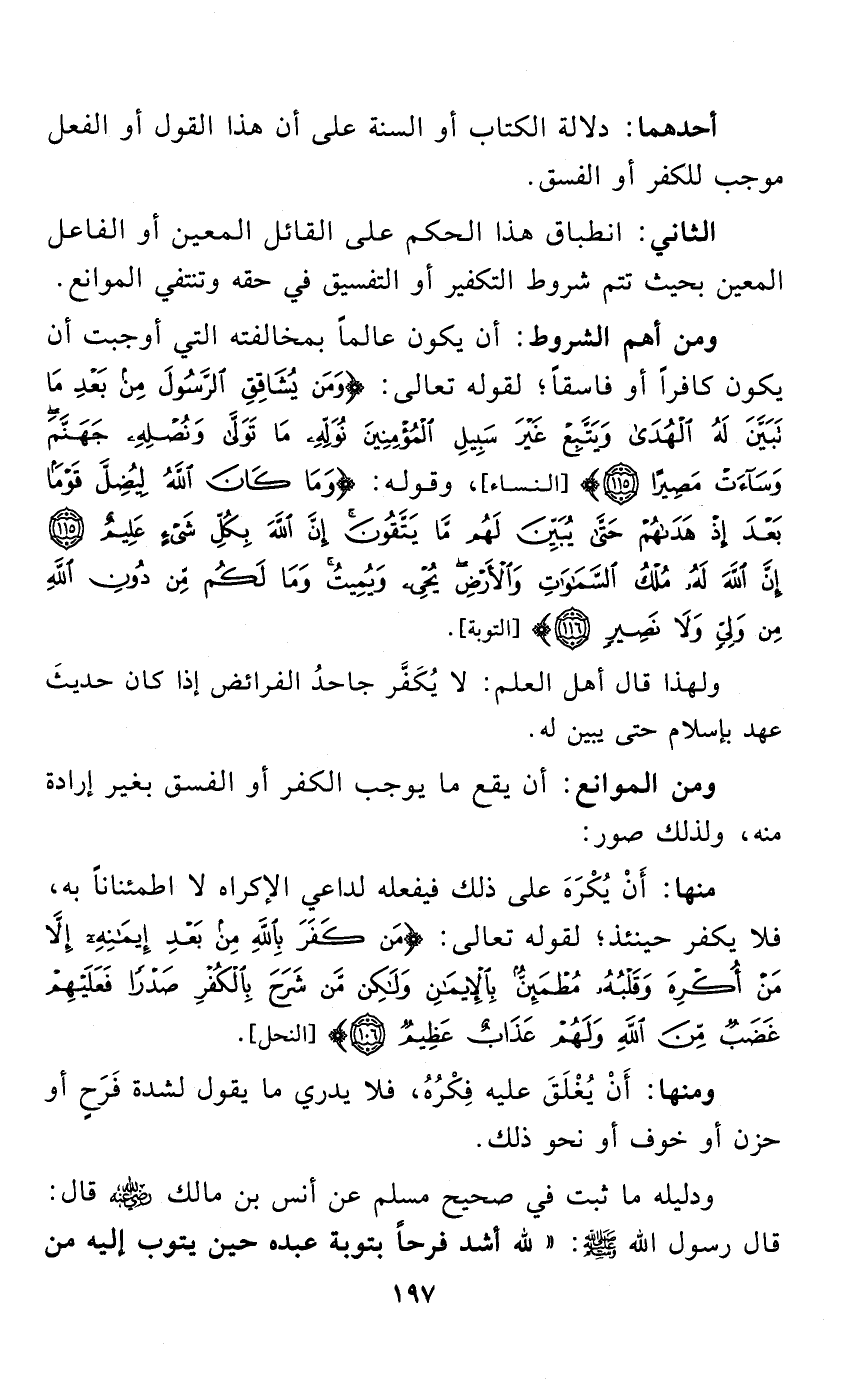 أحدهما: دلالة الكتاب أو السنة على أن هذا القول أو الفعل
موجب للكفر أو الفسق.
الثاني: انطباق هذا الحكم على القائل المعين أو الفاعل
المعين بحيث تتم شروط التكفير أو التفسيق في حقه وتنتفي الموانع.
ومن أهم الشروط: أن يكون عالماً بمخالفته التي أوجبت أن
يكون كافراً أو فاسقاً؛ لقوله تعالى: ﴿وَمَن يُشَاقِقِ ٱلرَّسُولَ مِنۢ بَعْدِ مَا
تَبَيَّنَ لَهُ ٱلْهُدَىٰ وَيَتَّبِعْ غَيْرَ سَبِيلِ ٱلْمُؤْمِنِينَ نُوَلِّهِۦ مَا تَوَلَّىٰ وَنُصْلِهِۦ جَهَنَّمَۖ
وَسَآءَتْ مَصِيرًا ١١٥﴾ [النساء]، وقوله: ﴿وَمَا كَانَ ٱللَّهُ لِيُضِلَّ قَوْمًۢا
بَعْدَ إِذْ هَدَىٰهُمْ حَتَّىٰ يُبَيِّنَ لَهُم مَّا يَتَّقُونَۚ إِنَّ ٱللَّهَ بِكُلِّ شَىْءٍ عَلِيمٌ ١١٥
إِنَّ ٱللَّهَ لَهُۥ مُلْكُ ٱلسَّمَٰوَٰتِ وَٱلْأَرْضِۖ يُحْىِۦ وَيُمِيتُۚ وَمَا لَكُم مِّن دُونِ ٱللَّهِ
مِن وَلِىٍّ وَلَا نَصِيرٍ ١١٦﴾ [التوبة].
ولهذا قال أهل العلم: لا يُكَفَّر جاحدُ الفرائض إذا كان حديثَ
عهد بإسلام حتى يبين له.
ومن الموانع: أن يقع ما يوجب الكفر أو الفسق بغير إرادة
منه، ولذلك صور:
منها: أَنْ يُكْرَهَ على ذلك فيفعله لداعي الإكراه لا اطمئناناً به،
فلا يكفر حينئذ؛ لقوله تعالى: ﴿مَن كَفَرَ بِٱللَّهِ مِنۢ بَعْدِ إِيمَٰنِهِۦٓ إِلَّا
مَنْ أُكْرِهَ وَقَلْبُهُۥ مُطْمَئِنٌّۢ بِٱلْإِيمَٰنِ وَلَٰكِن مَّن شَرَحَ بِٱلْكُفْرِ صَدْرًا فَعَلَيْهِمْ
غَضَبٌ مِّنَ ٱللَّهِ وَلَهُمْ عَذَابٌ عَظِيمٌ ١٠٦﴾ [النحل].
ومنها: أَنْ يُغْلَقَ عليه فِكْرُهُ، فلا يدري ما يقول لشدة فَرَحٍ أو
حزن أو خوف أو نحو ذلك.
ودليله ما ثبت في صحيح مسلم عن أنس بن مالك رضي الله عنه قال:
قال رسول الله ﷺ: «لله أشد فرحاً بتوبة عبده حين يتوب إليه من
١٩٧